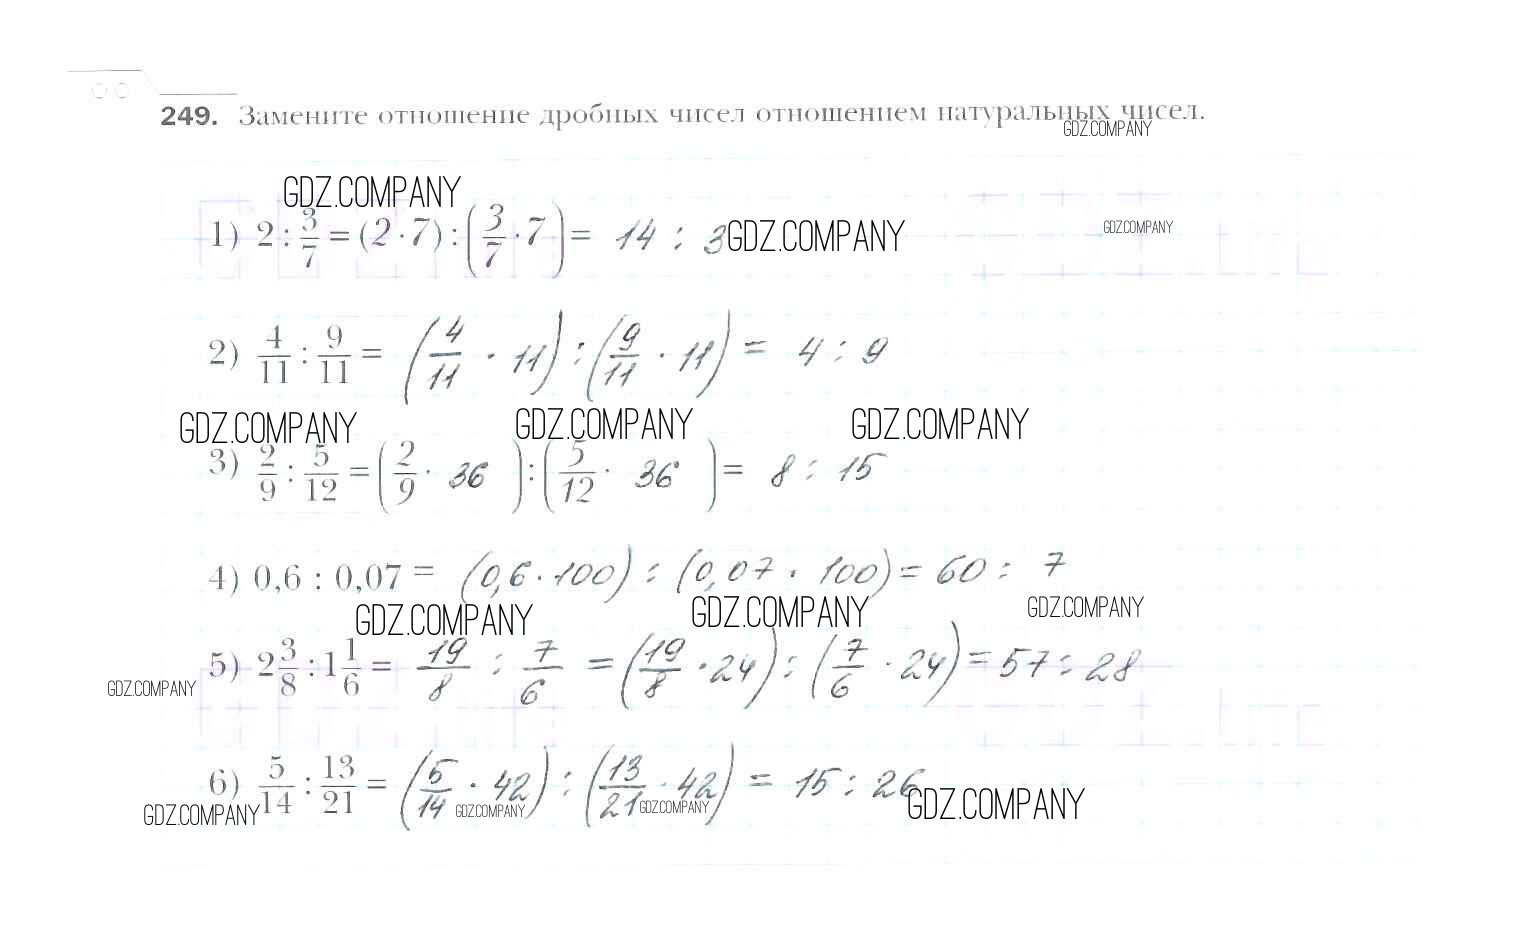 249. Замените отношение дробных чисел отношением натуральных чисел.
GDZ.COMPANY
GDZ.COMPANY
1) 2 : 3/7 = (2 · 7) : (3/7 · 7) = 14 : 3
GDZ.COMPANY
GDZ.COMPANY
2) 4/11 : 9/11 = (4/11 · 11) : (9/11 · 11) = 4 : 9
GDZ.COMPANY GDZ.COMPANY GDZ.COMPANY
3) 2/9 : 5/12 = (2/9 · 36) : (5/12 · 36) = 8 : 15
4) 0,6 : 0,07 = (0,6 · 100) : (0,07 · 100) = 60 : 7
GDZ.COMPANY GDZ.COMPANY GDZ.COMPANY
5) 2 3/8 : 1 1/6 = 19/8 : 7/6 = (19/8 · 24) : (7/6 · 24) = 57 : 28
GDZ.COMPANY
6) 5/14 : 13/21 = (5/14 · 42) : (13/21 · 42) = 15 : 26
GDZ.COMPANY GDZ.COMPANY GDZ.COMPANY GDZ.COMPANY